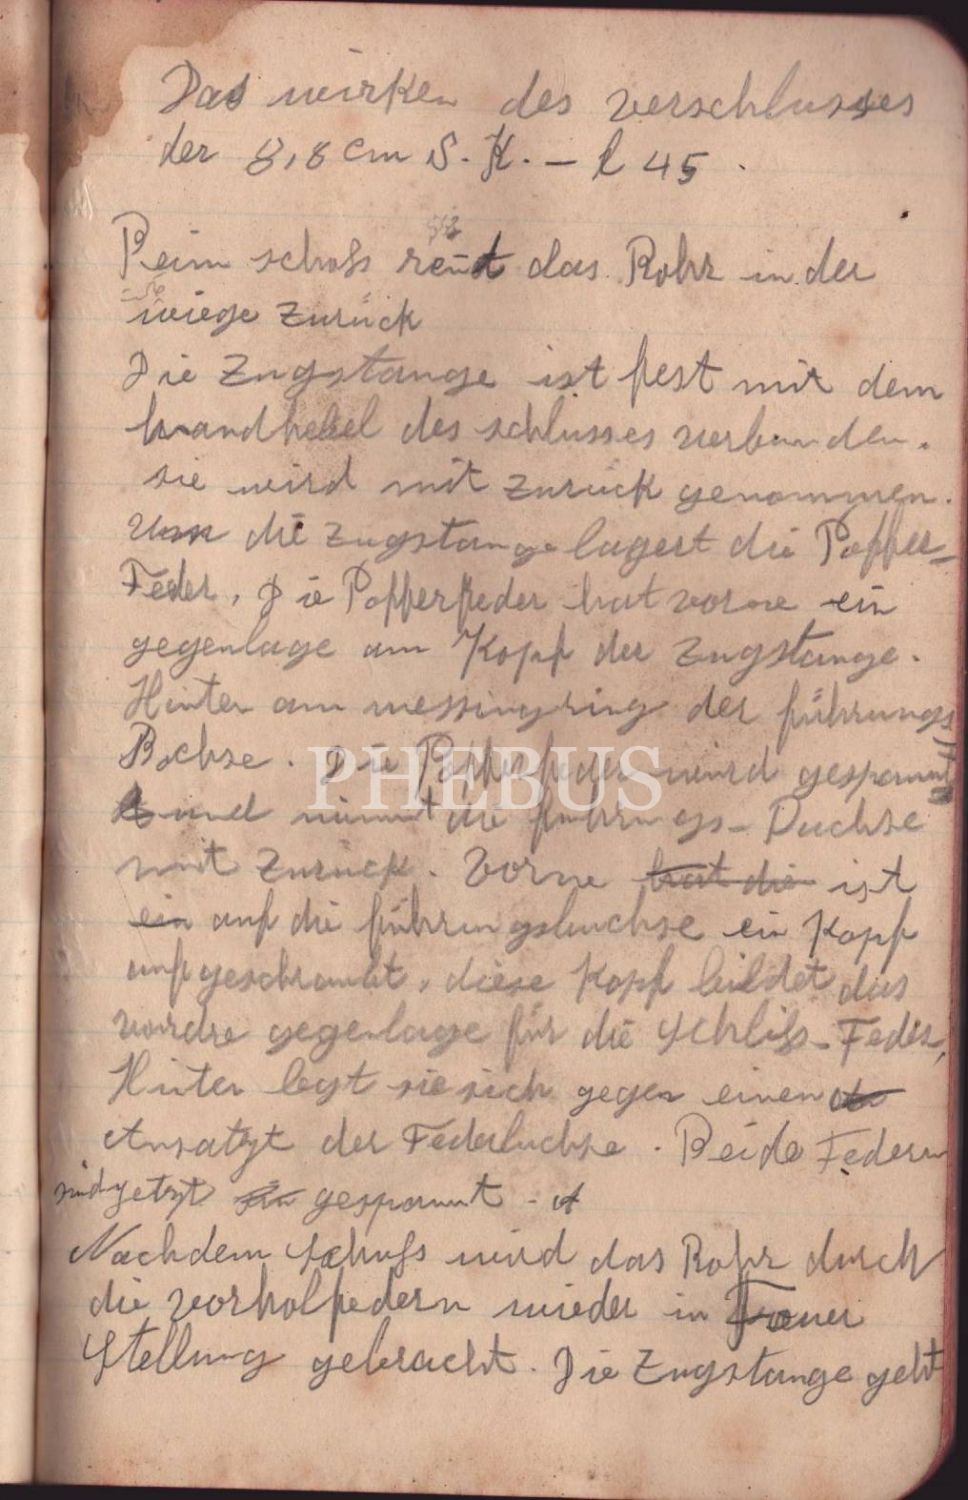 Das wirken des verschlusses
der 8,8 cm S. K. – l 45.
Beim schoss rent das Rohr in der
wiege Zurück
Die Zugstange ist fest mit dem
handhebel des schlusses verbunden.
sie wird mit zurück genommen.
Um die zugstange lagert die Poffer-
Feder, Die Pofferfeder hat vorne ein
gegenlage am Kopf der zugstange.
Hinten am messingring der führungs
Bochse. Die Pofferfeder wird gespannt
und nimmt die führungs- Buchse
mit Zurück. Vorne hat die ist
ein auf die führungsbuchse ein Kopf
aufgeschraubt, diese Kopf bildet das
vordre gegenlage für die Schliss-Feder,
Hinten legt sie sich gegen einen
Ansatzt der Federbuchse. Beide Federn
sind jetzt gespannt.
Nachdem schuss wird das Rohr durch
die vorholfedern wieder in Feuer
Stellung gebracht. Die Zugstange geht
PHEBUS